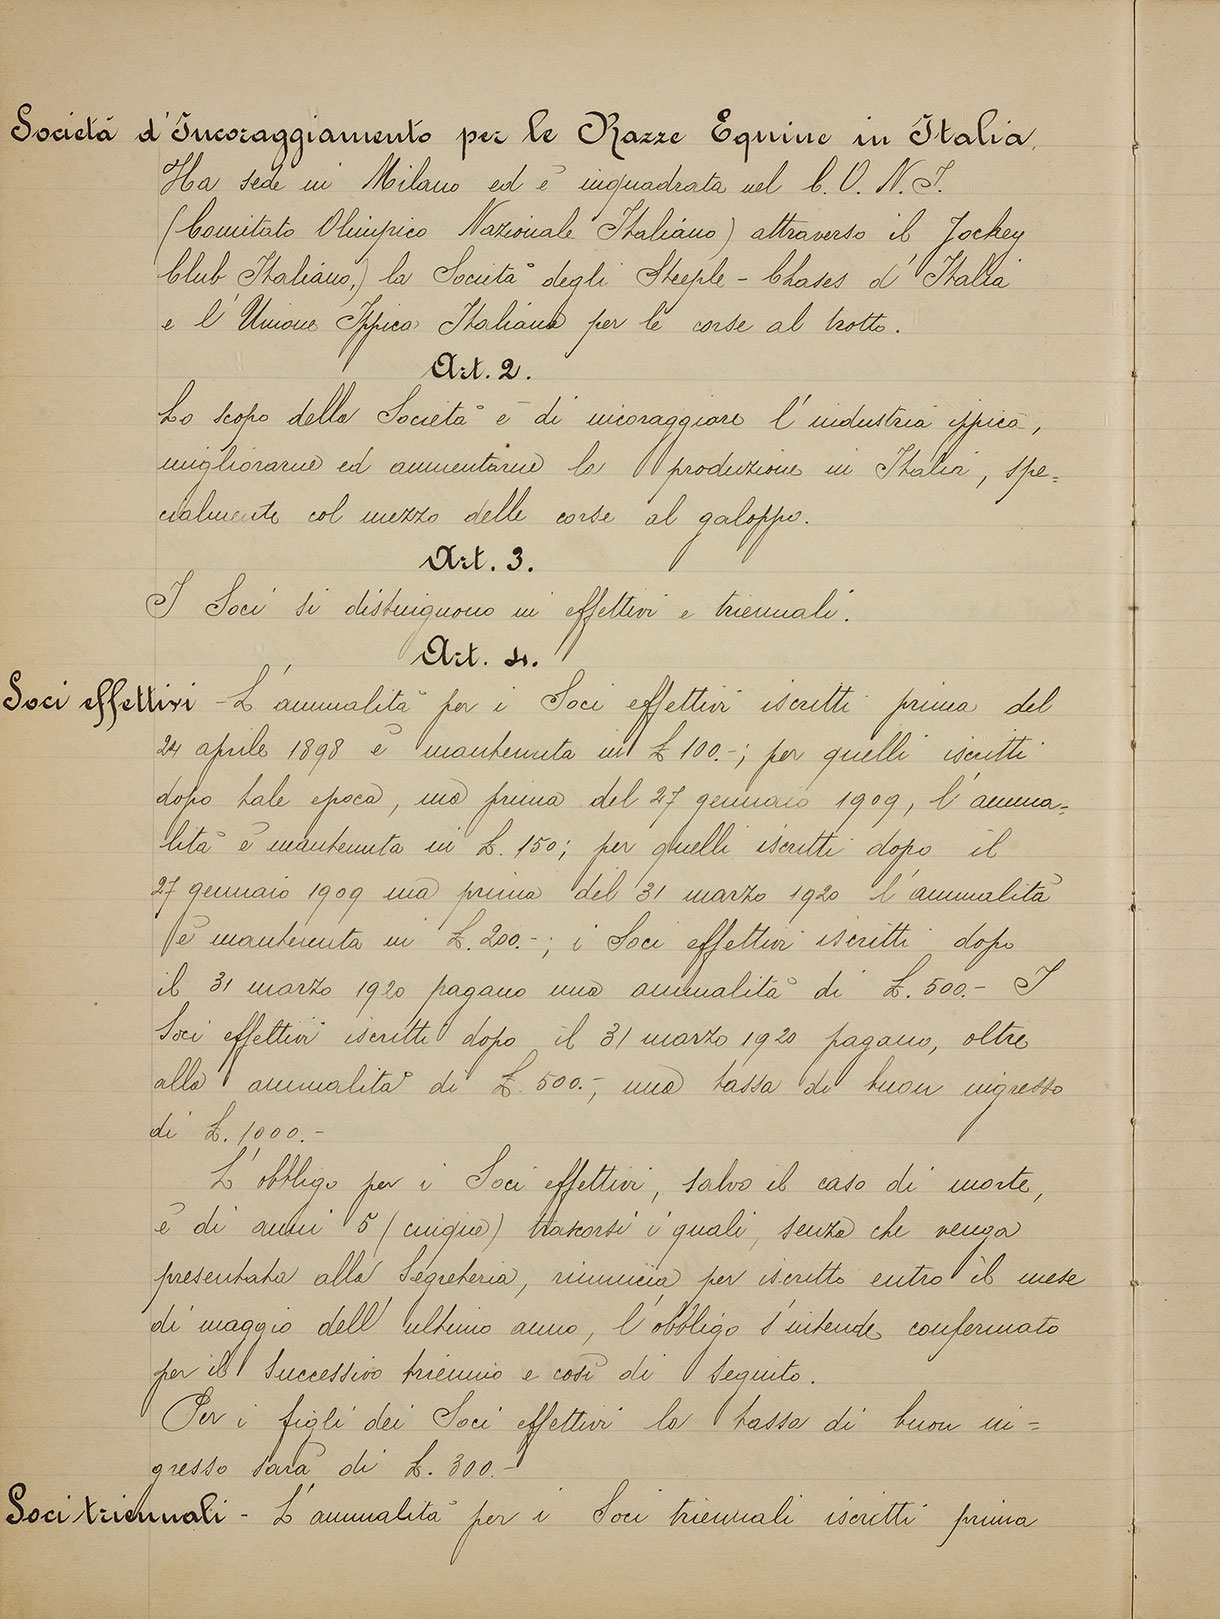 Società d'Incoraggiamento per le Razze Equine in Italia.
Ha sede in Milano ed è inquadrata nel C. O. N. I.
(Comitato Olimpico Nazionale Italiano) attraverso il Jockey
Club Italiano,) la Società degli Steeple - Chases d'Italia
e l'Unione Ippica Italiana per le corse al trotto.
Art. 2.
Lo scopo della Società è di incoraggiare l'industria ippica,
migliorarne ed aumentarne la produzione in Italia, spe=
cialmente col mezzo delle corse al galoppo.
Art. 3.
I Soci si distinguono in effettivi e triennali.
Art. 4.
Soci effettivi - L'annualità per i Soci effettivi iscritti prima del
24 aprile 1898 è mantenuta in £ 100.-; per quelli iscritti
dopo tale epoca, ma prima del 27 gennaio 1909, l'annua=
lità è mantenuta in £. 150; per quelli iscritti dopo il
27 gennaio 1909 ma prima del 31 marzo 1920 l'annualità
è mantenuta in £. 200.-; i Soci effettivi iscritti dopo
il 31 marzo 1920 pagano una annualità di £. 500.- I
Soci effettivi iscritti dopo il 31 marzo 1920 pagano, oltre
alla annualità di £. 500.-, una tassa di buon ingresso
di £. 1000.-
L'obbligo per i Soci effettivi, salvo il caso di morte,
è di anni 5 (cinque) trascorsi i quali, senza che venga
presentata alla Segreteria, rinuncia per iscritto entro il mese
di maggio dell'ultimo anno, l'obbligo s'intende confermato
per il successivo triennio e così di seguito.
Per i figli dei Soci effettivi la tassa di buon in=
gresso sarà di £. 300.-
Soci triennali - L'annualità per i Soci triennali iscritti prima